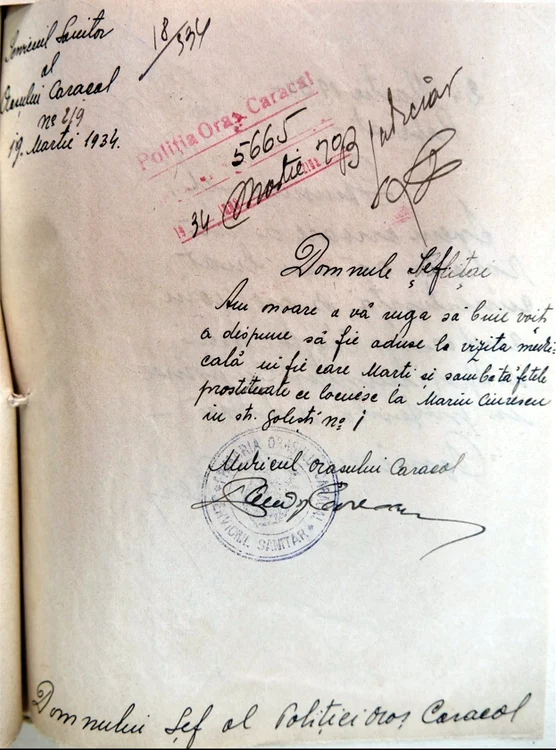 Serviciul Sanitar
al
Orasului Caracal
no 219
19. Martie 1934.
18/534
Politia Oraș Caracal
5665
34 Martie 20
Judiciar
Domnule Șef
Am onoare a vă ruga să bine voiți
a dispune să fie aduse la vizita medi-
cală in fie care Marti si sambătă fetele
prostituate ce locuesc la Marin Ciurescu
in str. golești no 1
Medicul orasului Caracal
SERVICIUL SANITAR
Domnului Șef al Poliției oraș Caracal